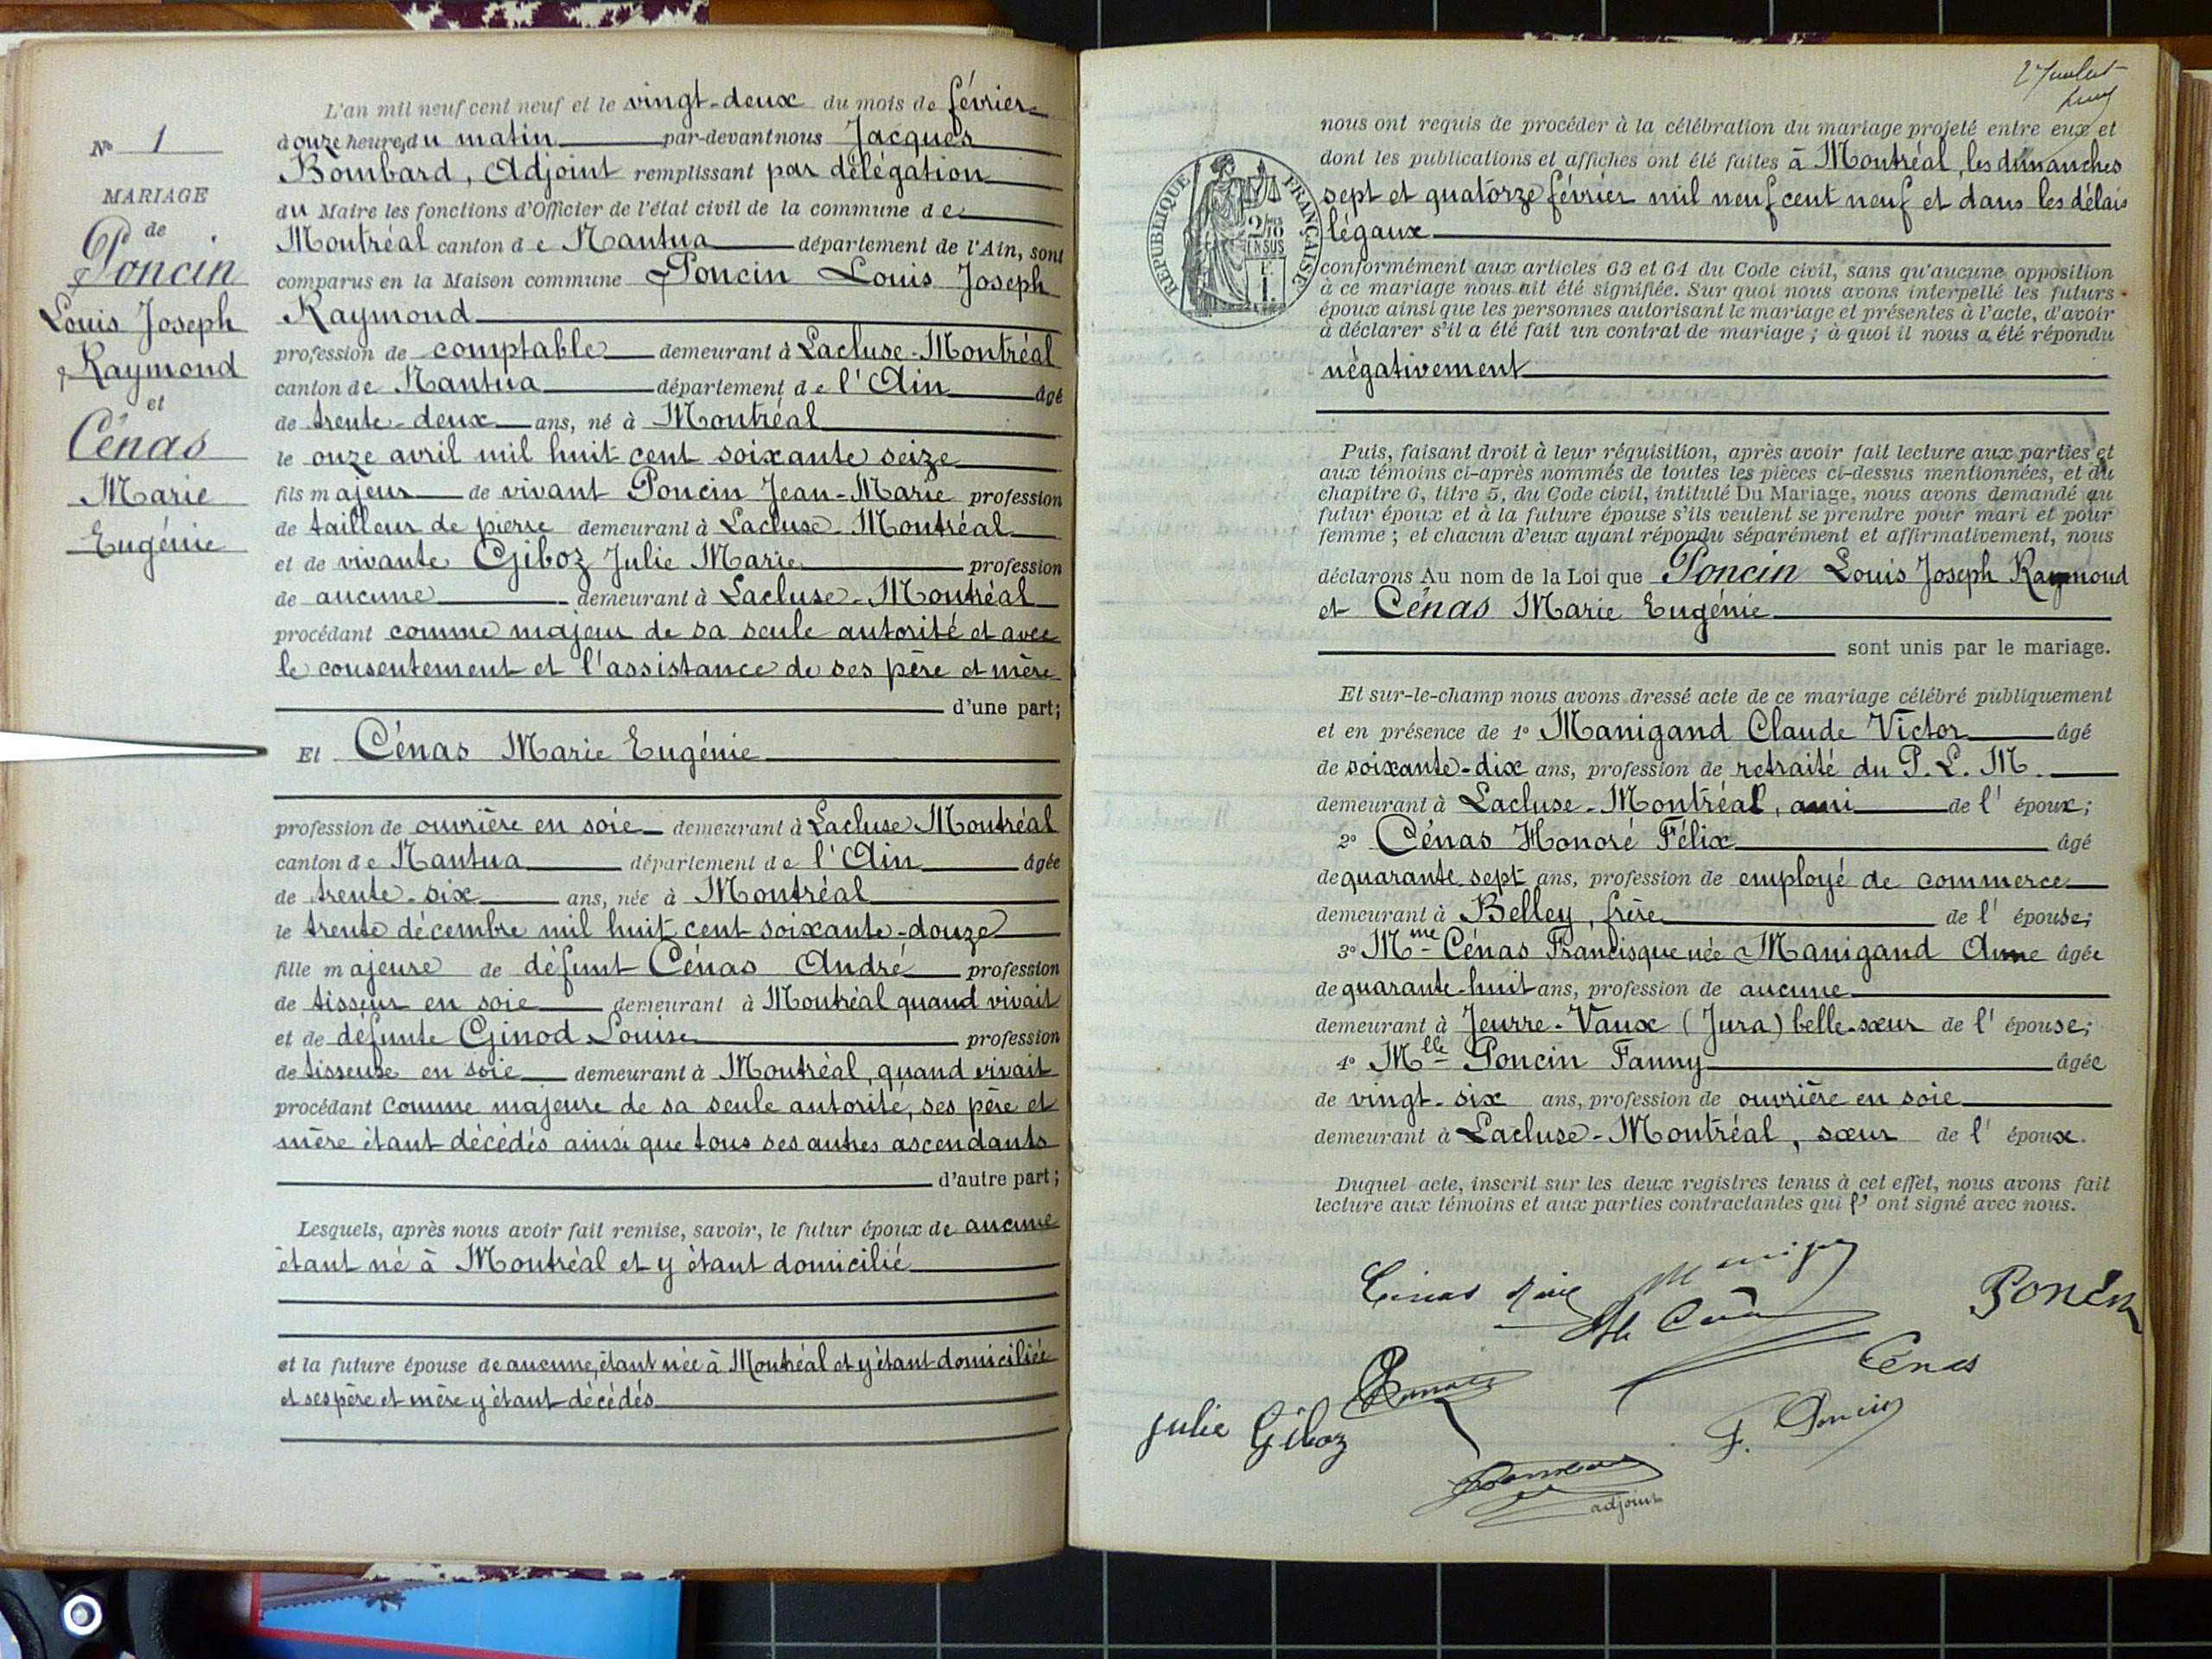 N° 1
MARIAGE
de
Poncin
Louis Joseph
Raymond
et
Cénas
Marie
Eugénie
L'an mil neuf cent neuf et le vingt-deux du mois de février
à onze heures du matin par-devant nous Jacques
Bombard, Adjoint remplissant par délégation
du Maire les fonctions d'Officier de l'état civil de la commune de
Montréal canton de Nantua département de l'Ain, sont
comparus en la Maison commune Poncin Louis Joseph
Raymond
profession de comptable demeurant à Lacluse-Montréal
canton de Nantua département de l'Ain âgé
de trente-deux ans, né à Montréal
le onze avril mil huit cent soixante seize
fils majeur de vivant Poncin Jean-Marie profession
de tailleur de pierre demeurant à Lacluse-Montréal
et de vivante Giboz Julie Marie profession
de aucune demeurant à Lacluse-Montréal
procédant comme majeur de sa seule autorité et avec
le consentement et l'assistance de ses père et mère
d'une part;
Et Cénas Marie Eugénie
profession de ouvrière en soie demeurant à Lacluse-Montréal
canton de Nantua département de l'Ain âgée
de trente-six ans, née à Montréal
le trente décembre mil huit cent soixante-douze
fille majeure de défunt Cénas André profession
de tisseur en soie demeurant à Montréal quand vivait
et de défunte Ginod Louise profession
de tisseuse en soie demeurant à Montréal, quand vivait
procédant comme majeure de sa seule autorité, ses père et
mère étant décédés ainsi que tous ses autres ascendants
d'autre part;
Lesquels, après nous avoir fait remise, savoir, le futur époux de aucune
étant né à Montréal et y étant domicilié
et la future épouse de aucune, étant née à Montréal et y étant domiciliée
et ses père et mère y étant décédés
RÉPUBLIQUE FRANÇAISE
2/10
EN SUS
nous ont requis de procéder à la célébration du mariage projeté entre eux et
dont les publications et affiches ont été faites à Montréal, les dimanches
sept et quatorze février mil neuf cent neuf et dans les délais
légaux
conformément aux articles 63 et 64 du Code civil, sans qu'aucune opposition
à ce mariage nous ait été signifiée. Sur quoi nous avons interpellé les futurs
époux ainsi que les personnes autorisant le mariage et présentes à l'acte, d'avoir
à déclarer s'il a été fait un contrat de mariage; à quoi il nous a été répondu
négativement
Puis, faisant droit à leur réquisition, après avoir fait lecture aux parties et
aux témoins ci-après nommés de toutes les pièces ci-dessus mentionnées, et du
chapitre 6, titre 5, du Code civil, intitulé Du Mariage, nous avons demandé au
futur époux et à la future épouse s'ils veulent se prendre pour mari et pour
femme; et chacun d'eux ayant répondu séparément et affirmativement, nous
déclarons Au nom de la Loi que Poncin Louis Joseph Raymond
et Cénas Marie Eugénie
sont unis par le mariage.
Et sur-le-champ nous avons dressé acte de ce mariage célébré publiquement
et en présence de 1° Manigand Claude Victor âgé
de soixante-dix ans, profession de retraité du P. L. M.
demeurant à Lacluse-Montréal, ami de l'époux;
2° Cénas Honoré Félix âgé
de quarante-sept ans, profession de employé de commerce
demeurant à Belley, frère de l'épouse;
3° Mme Cénas Francisque née Manigand Anne âgée
de quarante-huit ans, profession de aucune
demeurant à Jeurre-Vaux (Jura) belle-sœur de l'épouse;
4° Mlle Poncin Fanny âgée
de vingt-six ans, profession de ouvrière en soie
demeurant à Lacluse-Montréal, sœur de l'époux.
Duquel acte, inscrit sur les deux registres tenus à cet effet, nous avons fait
lecture aux témoins et aux parties contractantes qui l'ont signé avec nous.
Poncin
Cénas
Julie Giboz
F. Poncin
adjoint